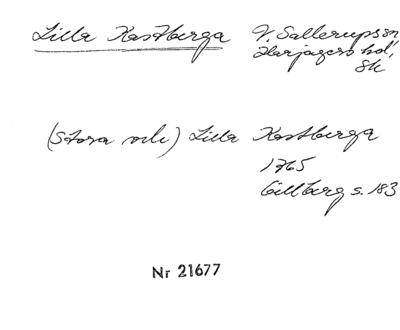 Lilla Kastberga V. Sallerups sn
Harjagers hd,
Sk
(Stora och) Lilla Kastberga
1765
Gillberg s. 183
Nr 21677